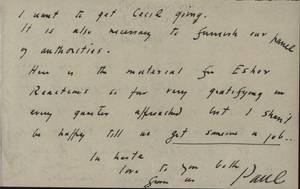 I want to get Cecil going.
It is also necessary to furnish our panel
of authorities.
Here is the material for Esher
Reactions so far very gratifying in
every quarter approached but I shan't
be happy till we get someone a job..
In haste
love to you both
from us Paul